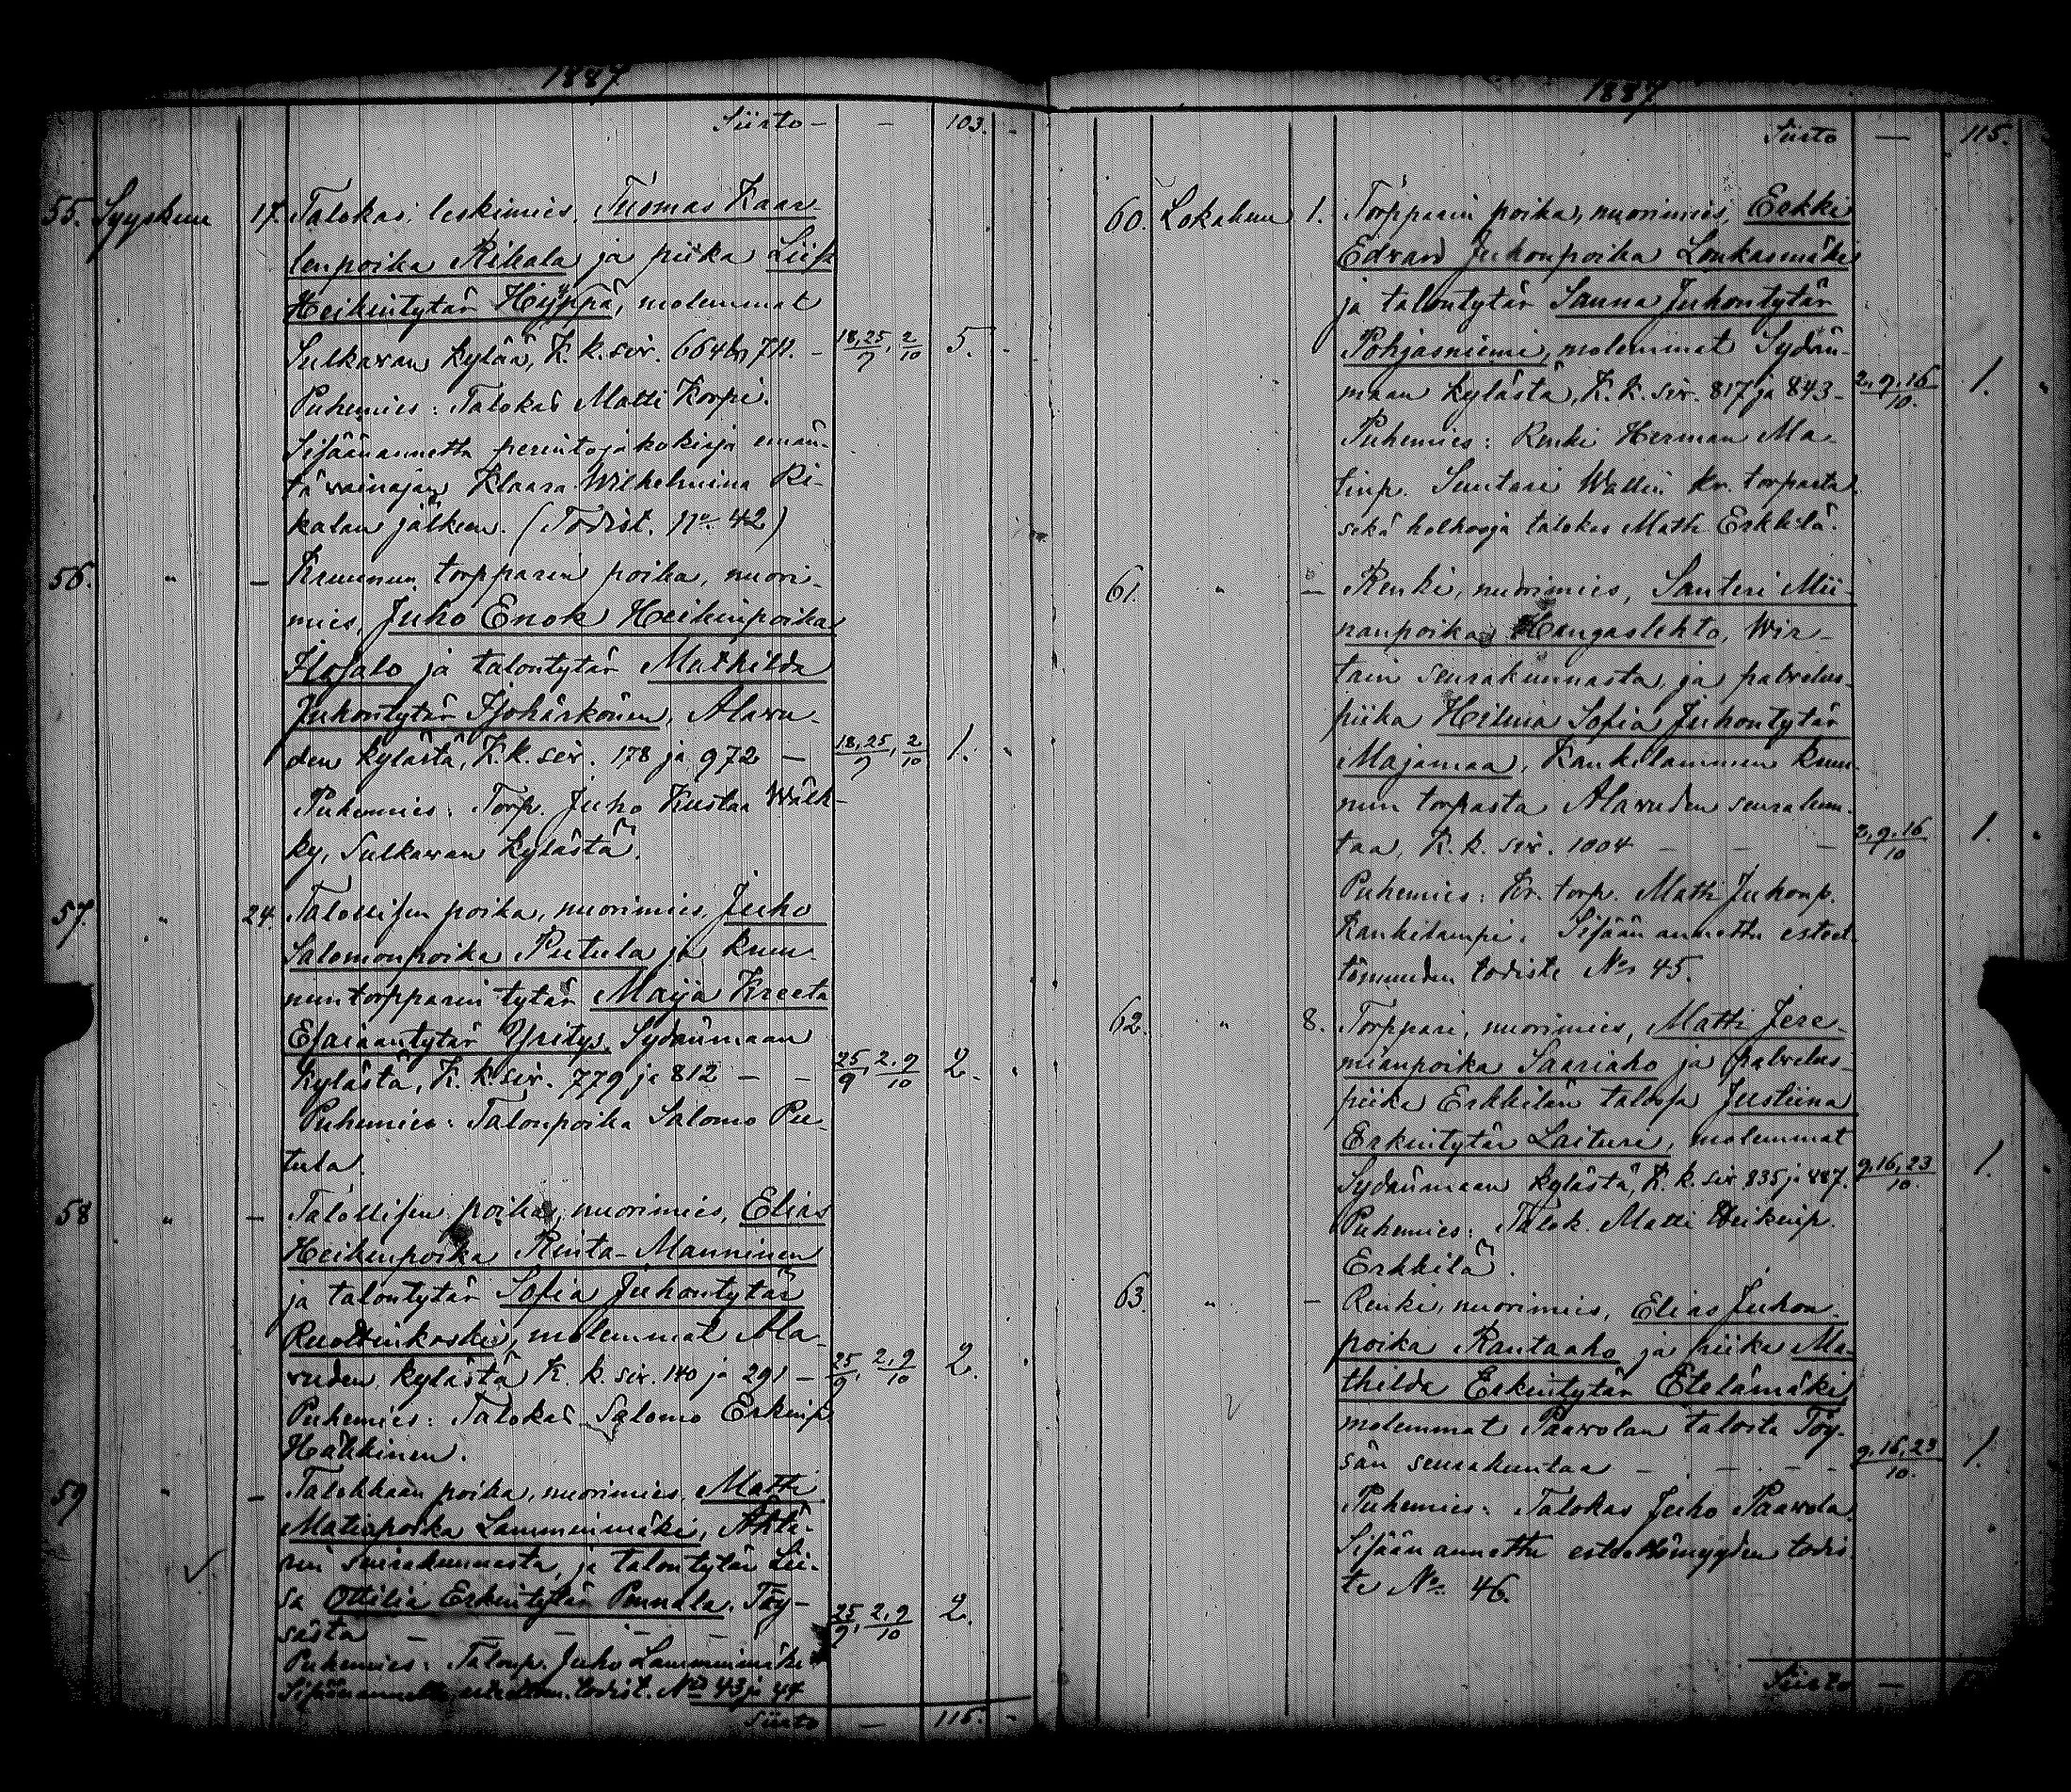 1887
Siirto - - 103. -
55. Syyskuu 17. Talokas, leskimies, Tuomas Kaar-
lenpoika Rikala ja piika Liisa
Heikintytär Hyyppä, molemmat
Sulkawan kylää, K. k. siv. 664 711. - 18,25/9, 2/10 5. -
Puhemies: Talokas Matti Korpi.
Sisäänannettu perintöjakokirja emän-
tä wainajan Klaara Wilhelmina Ri-
kalan jälkeen. (Todist. No 42)
56. " - Kruunun torpparin poika, nuori-
mies, Juho Enok Heikinpoika
Ilosalo ja talontytär Mathilda
Juhontytär Isohärkönen, Alawu-
den kylästä, K. k. siv. 178 ja 972 - 18,25/9, 2/10 1. -
Puhemies: Torp. Juho Kustaa Wälk-
ky, Sulkawan kylästä.
57. " 24. Talollisen poika, nuorimies, Juho
Salomonpoika Putula ja kruu-
nuntorpparin tytär Maija Kreeta
Esaiaantytär Yritys, Sydänmaan
kylästä, K. k. siv. 779 ja 812 - - 25/9, 2,9/10 2. -
Puhemies: Talonpoika Salomo Pu-
tula.
58 " - Talollisen poika, nuorimies, Elias
Heikinpoika Rinta-Manninen
ja talontytär Sofia Juhontytär
Ruottinkoski, molemmat Ala-
wuden kylästä K. k. siv. 140 ja 291 - 25/9, 2,9/10 2. -
Puhemies: Talokas Salomo Erkinp.
Häkkinen.
59 " - Talokkaan poika, nuorimies, Matti
Matinpoika Lamminmäki, Ähtä-
rin seurakunnasta, ja talontytär Lii-
sa Ottilia Erkintytär Pennala, Töy-
sästä - - - - - 25/9, 2,9/10 2.
Puhemies: Talonp. Juho Lamminmäki
Sisäänannettu esteettöm. todist. No 43 ja 44
Siirto - 115. -
1887
Siirto - 115.
60. Lokakuu 1. Torpparin poika, nuorimies, Erkki
Edvard Juhonpoika Loukasmäki
ja talontytär Sanna Juhontytär
Pohjasniemi, molemmat Sydän-
maan kylästä, K. k. siv. 817 ja 843 - 2,9,16/10. 1. -
Puhemies: Renki Herman Ma-
tinp. Suutari Wallin kr. torpasta
sekä holhooja talokas Matti Erkkilä.
61. " - Renki, nuorimies, Santeri Mii-
nanpoika Hangaslehto, Wir-
tain seurakunnasta, ja palvelus-
piika Hilma Sofia Juhontytär
Majamaa, Kankilammen kruu-
nun torpasta Alawuden seurakun-
taa, K. k. siv. 1004 - - - 2,9,16/10 1. -
Puhemies: Kr. torp. Matti Juhonp.
Kankilampi. Sisään annettu esteet-
tömuuden todiste No 45.
62. " 8. Torppari, nuorimies, Matti Jere-
mianpoika Saariaho ja palvelus-
piika Erkkilän talossa Justiina
Erkintytär Laituri, molemmat
Sydänmaan kylästä, K. k. siv 835 ja 887. 9,16,23/10. 1.
Puhemies: Talok. Matti Heikinp.
Erkkilä.
63. " - Renki, nuorimies, Elias Juhon-
poika Rantaaho ja piika Ma-
thilda Erkintytär Etelämäki,
molemmat Paawolan talosta Töy-
sän seurakuntaa - - - - 9,16,23/10. 1.
Puhemies: Talokas Juho Paawola.
Sisään annettu esteettömyyden todis-
te No 46.
Siirto -